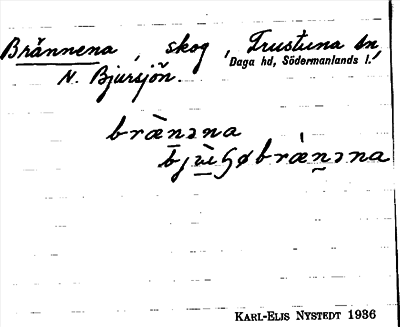 Brännena, skog, Frustuna sn,
Daga hd, Södermanlands l.
N. Bjursjön.
bræ̀nəna
bjʉ̀ɩʃøbræ̀nəna
KARL-ELIS NYSTEDT 1936